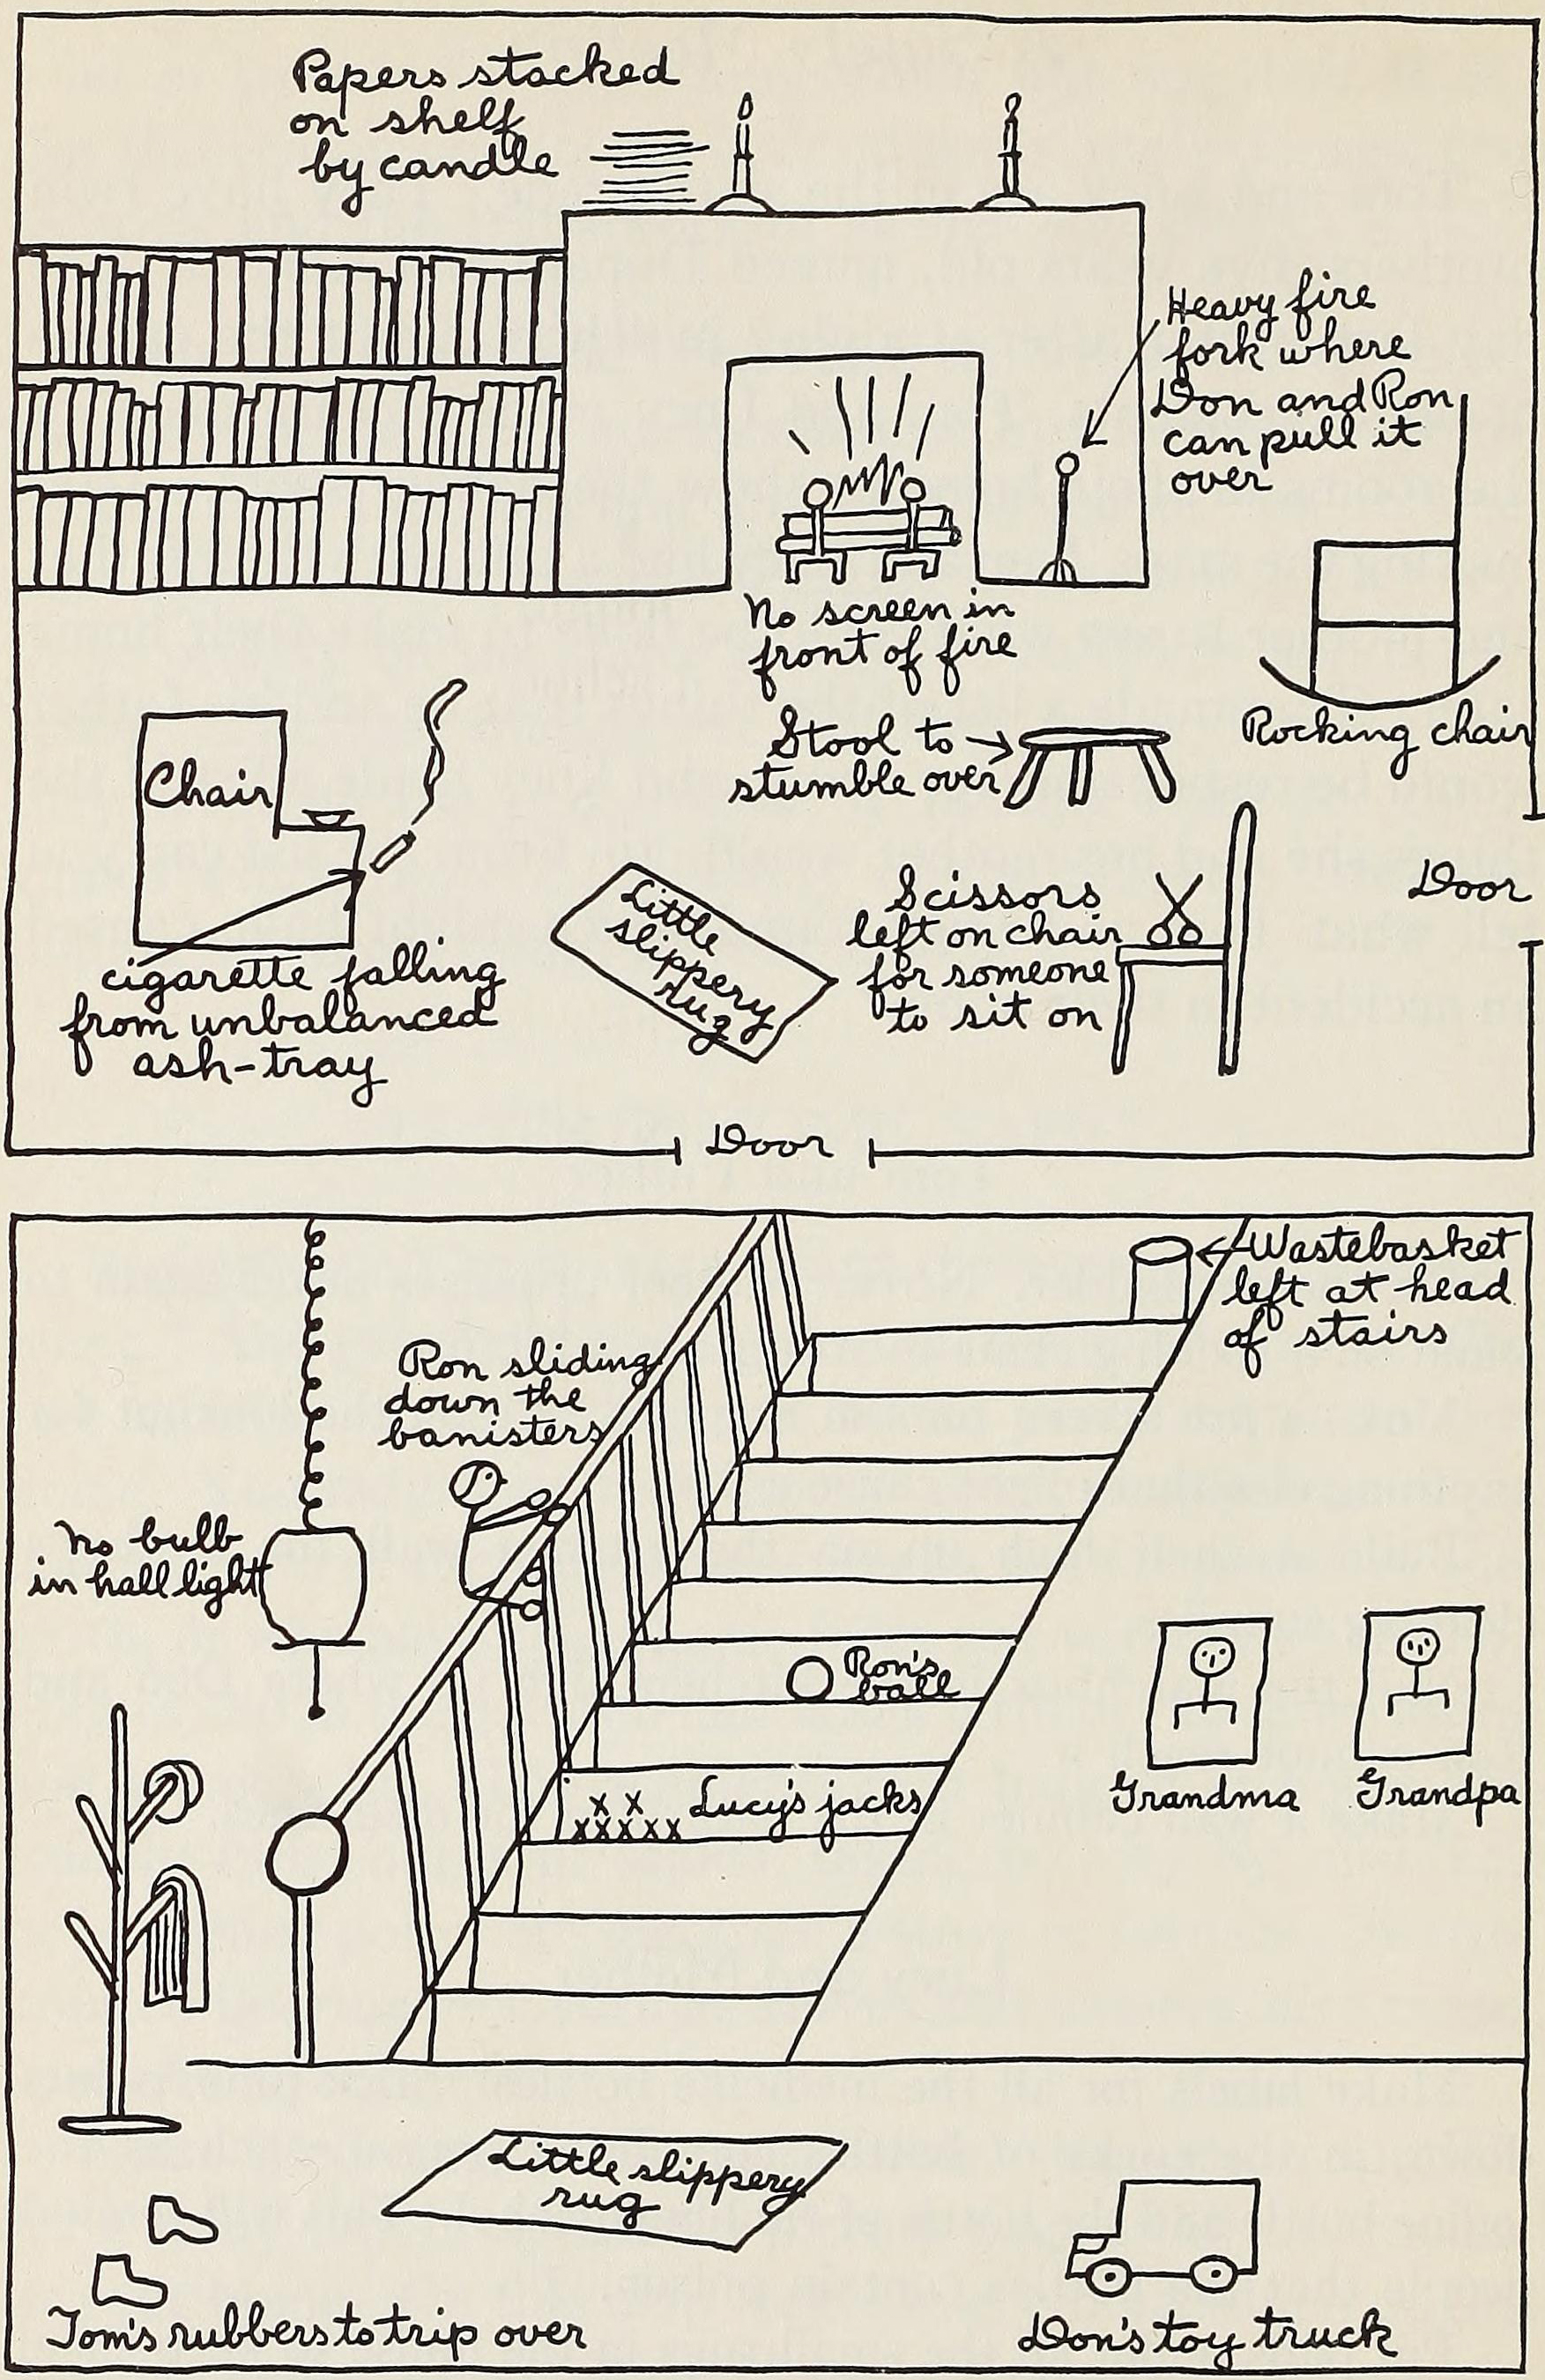 Papers stacked
on shelf
by candle
Heavy fire
fork where
Don and Ron
can pull it
over
No screen in
front of fire
Rocking chair
Stool to
stumble over
Chair
Door
Little
slippery
rug
Scissors
left on chair
for someone
to sit on
cigarette falling
from unbalanced
ash-tray
Door
Wastebasket
left at head
of stairs
Ron sliding
down the
banisters
No bulb
in hall light
Ron's
ball
Lucy's jacks
Grandma
Grandpa
Little slippery
rug
Tom's rubbers to trip over
Don's toy truck